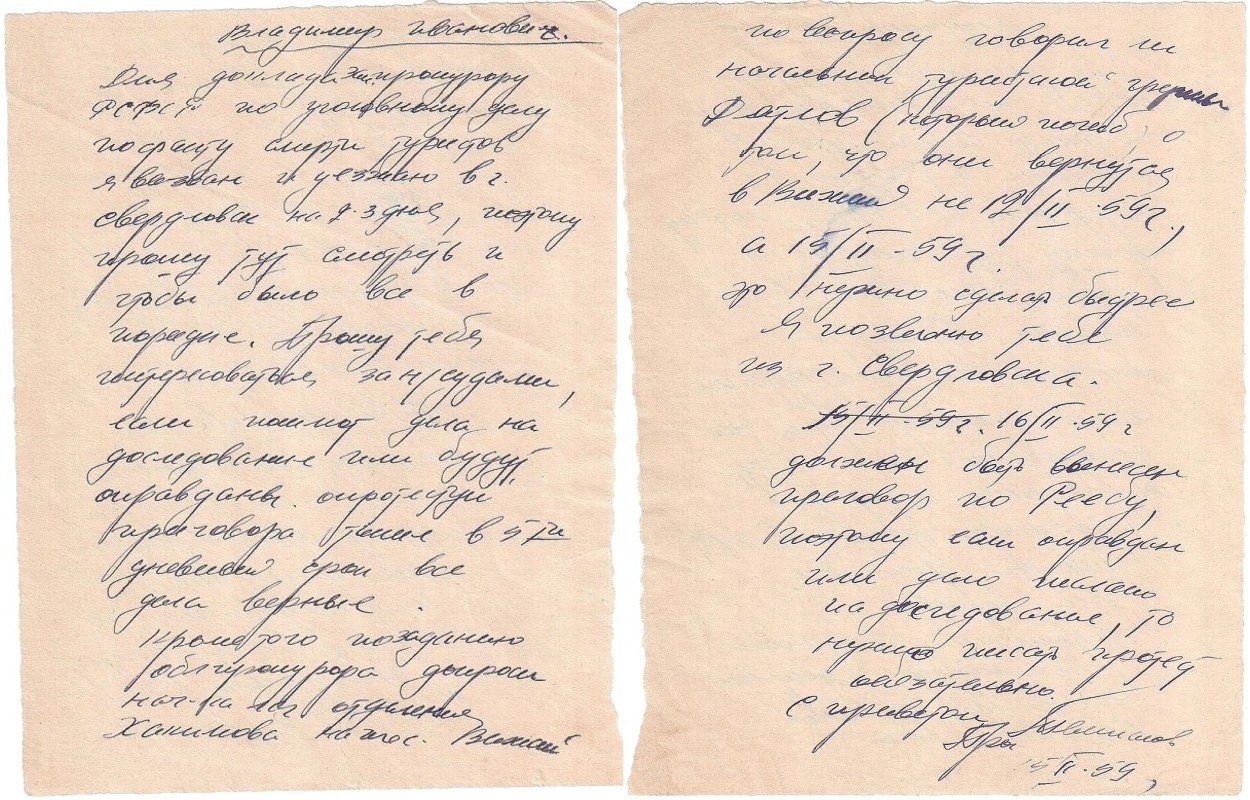 Владимир Иванович.
Для доклада зам. прокурору
РСФСР по уголовному делу
по факту смерти туристов
я вызван и уезжаю в г.
Свердловск на 2-3 дня, поэтому
прошу тут смотреть и
чтобы было все в
порядке. Прошу тебя
интересоваться за н/судами,
если пошлют дела на
доследование или будут
оправданы опротестуй
приговора также в 5ти
дневный срок все
дела верные.
Кроме того по заданию
облпрокурора допроси
нач-ка лаг отделения
Хакимова на пос. Вижай
по вопросу говорил ли
начальник туристской группы
Дятлов (который погиб) о
том, что они вернутся
в Вижай не 12/II-59 г.,
а 15/II-59 г.
это нужно сделать быстрее
Я позвоню тебе
из г. Свердловска.
15/II-59 г. 16/II-59 г
должен быть вынесен
приговор по Реебу,
поэтому если оправдан
или дело послано
на доследование, то
нужно писать протест
обязательно.
С приветом Темпалов
15/II-59 г